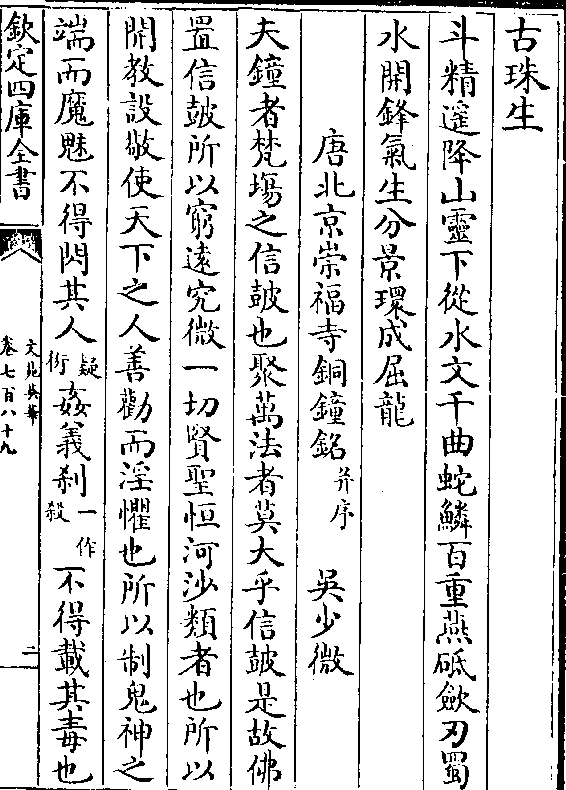 古珠生
斗精遥降山靈下從水文千曲蛇鱗百重燕砥斂刃蜀
水開鋒氣生分景環成屈龍
唐北京崇福寺銅鐘銘并序 吳少微
夫鐘者梵塲之信鼓也聚萬法者莫大乎信鼓是故佛
置信鼓所以窮遠究微一切賢聖恒河沙類者也所以
開教設敬使天下之人善勸而淫懼也所以制鬼神之
端而魔魅不得閃其人疑術姦義剎一作殺不得載其毒也
欽定四庫全書
文苑英華
卷七百八十九
二